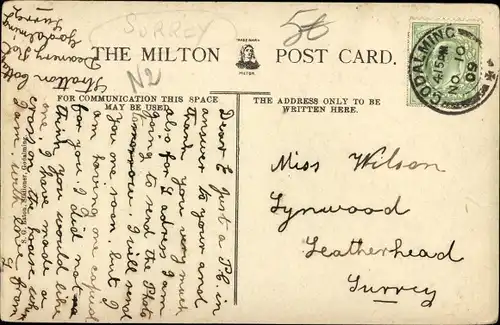 SURREY
5d
N2
TRADE MARK
MILTON
THE MILTON POST CARD.
FOR COMMUNICATION THIS SPACE
MAY BE USED.
THE ADDRESS ONLY TO BE
WRITTEN HERE.
GODALMING
4.15 PM
NO 10
09
Miss Wilson
Lynwood
Leatherhead
Surrey
Stratton
Deanery Rd
Godalming
Surrey
Dear E Just a P.C. in
answer to yours and
thank you very much
also for L adress I am
going to send the Photo
tomorrow. I will send
you one soon, but I
am having one enjust
for you I did not
think you would like
one I have made a
cross on the house where
I am. with love from
Stationer, Godalming.